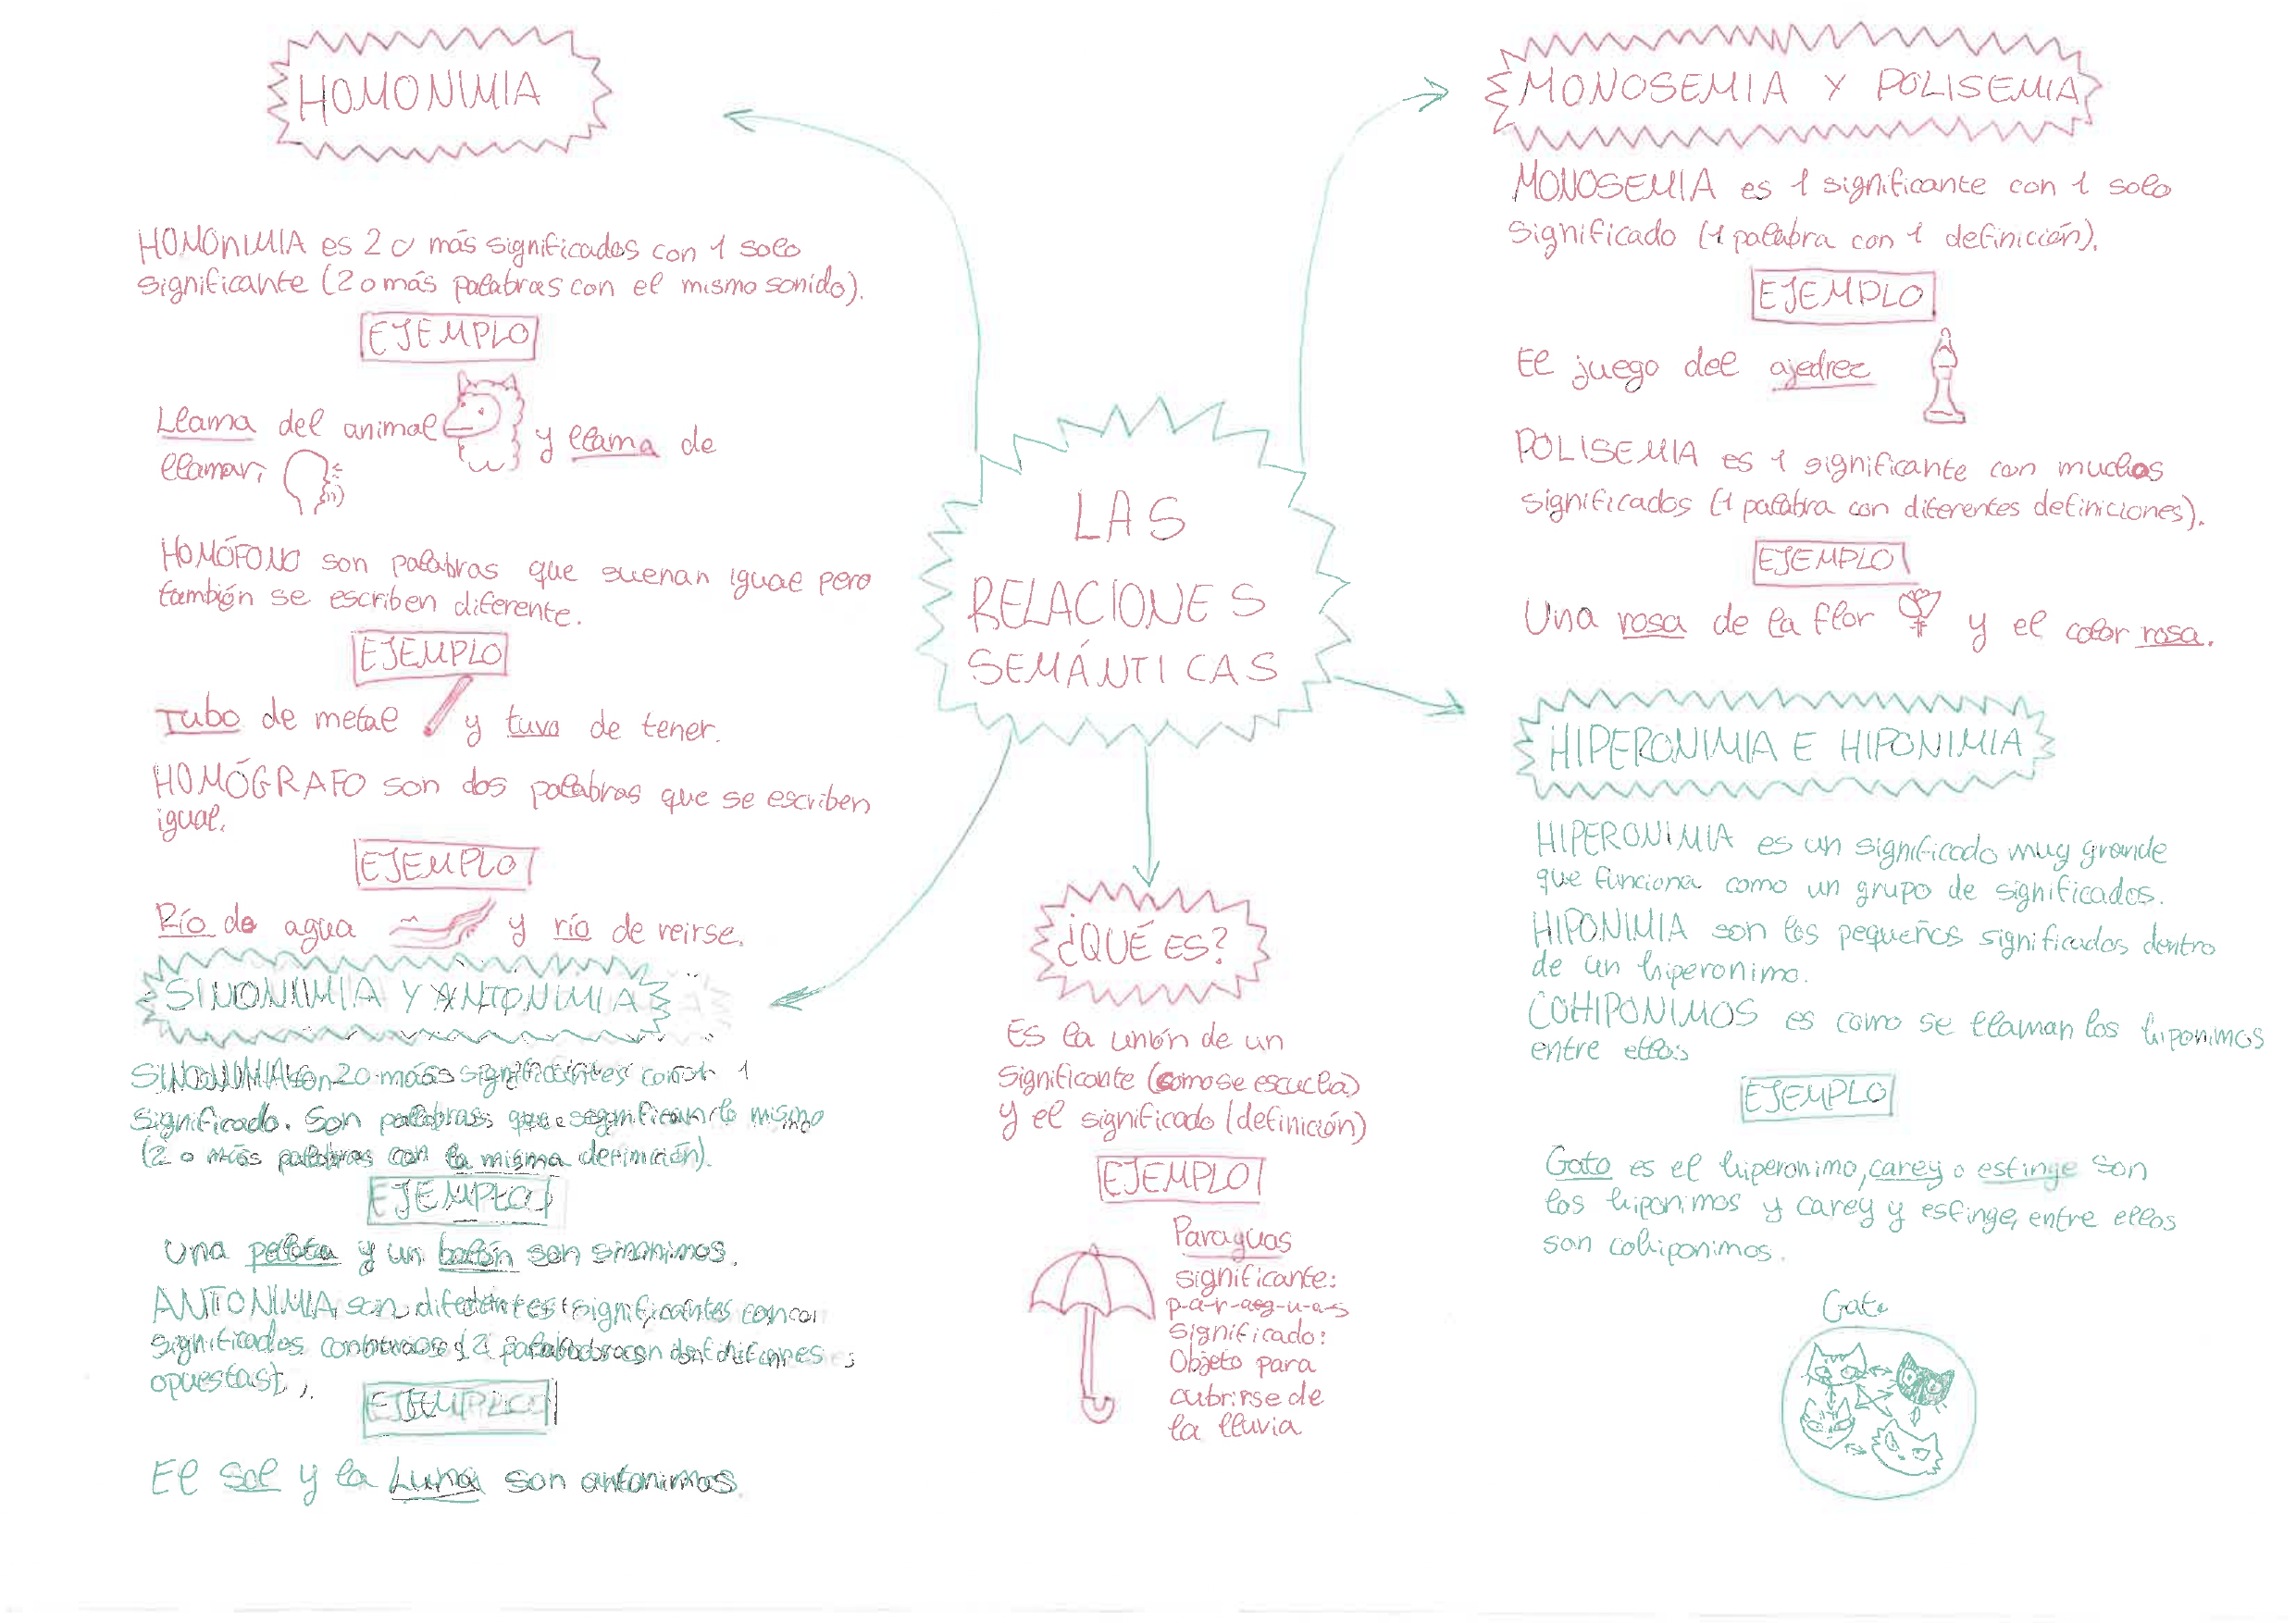 HOMONIMIA
HOMONIMIA es 2 o más significados con 1 solo
significante (2 o más palabras con el mismo sonido).
EJEMPLO
Llama del animal y llama de
llamar.
HOMÓFONO son palabras que suenan igual pero
también se escriben diferente.
EJEMPLO
Tubo de metal y tuvo de tener.
HOMÓGRAFO son dos palabras que se escriben
igual.
EJEMPLO
Río de agua y río de reirse.
SINONIMIA Y ANTONIMIA
SINONIMIA son 2 o más significantes con 1
significado. Son palabras que significan lo mismo
(2 o más palabras con la misma definición).
EJEMPLO
Una pelota y un balón son sinonimos.
ANTONIMIA son diferentes significantes con
significados contrarios (2 palabras con definiciones
opuestas).
EJEMPLO
El sol y la Luna son antonimos.
LAS
RELACIONES
SEMÁNTICAS
¿QUÉ ES?
Es la unión de un
significante (como se escucha)
y el significado (definición)
EJEMPLO
Paraguas
significante:
p-a-r-a-g-u-a-s
significado:
Objeto para
cubrirse de
la lluvia
MONOSEMIA Y POLISEMIA
MONOSEMIA es 1 significante con 1 solo
significado (1 palabra con 1 definición).
EJEMPLO
El juego del ajedrez
POLISEMIA es 1 significante con muchos
significados (1 palabra con diferentes definiciones).
EJEMPLO
Una rosa de la flor y el color rosa.
HIPERONIMIA E HIPONIMIA
HIPERONIMIA es un significado muy grande
que funciona como un grupo de significados.
HIPONIMIA son los pequeños significados dentro
de un hiperonimo.
COHIPONIMOS es como se llaman los hiponimos
entre ellos
EJEMPLO
Gato es el hiperonimo, carey o esfinge son
los hiponimos y carey y esfinge, entre ellos
son cohiponimos.
Gato